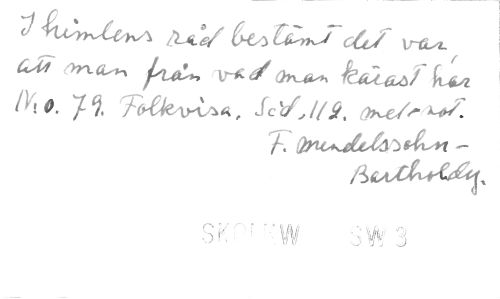 I himlens råd bestämt det var,
att man från vad man kärast har
N:o. 79. Folkvisa. Sid. 112. mel-not.
F. Mendelssohn-
Bartholdy.
SW 3